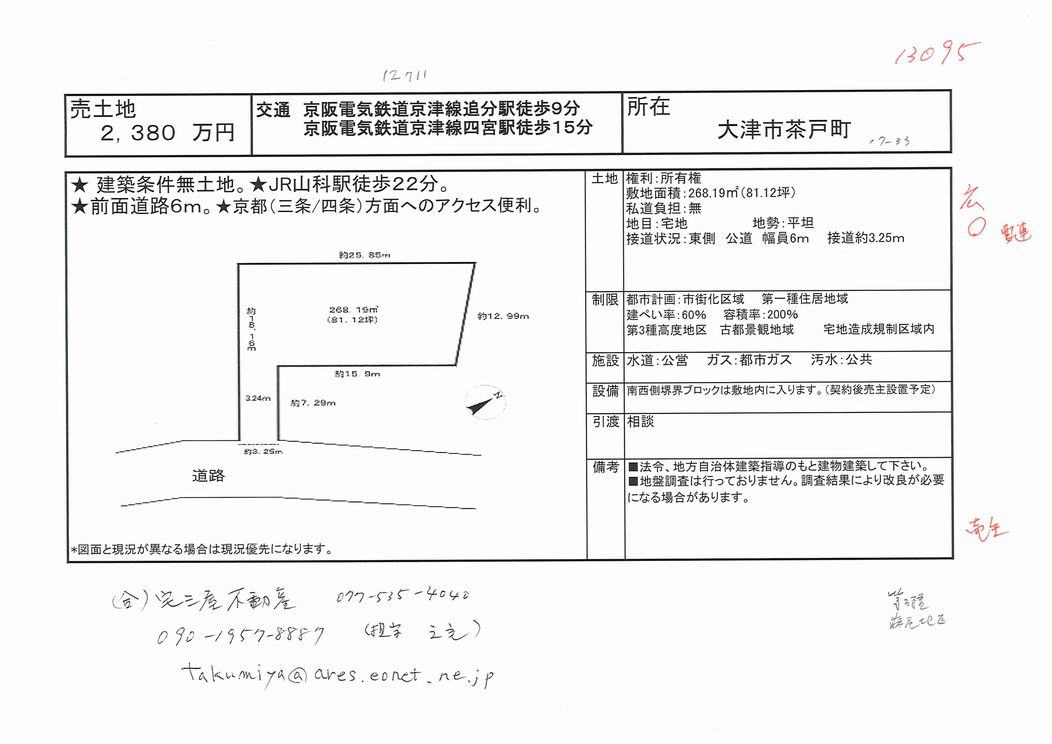 13095
12711
売土地
2,380 万円
交通 京阪電気鉄道京津線追分駅徒歩9分
京阪電気鉄道京津線四宮駅徒歩15分
所在
大津市茶戸町
17-33
★ 建築条件無土地。★JR山科駅徒歩22分。
★前面道路6m。★京都(三条/四条)方面へのアクセス便利。
約25.85m
約18.16m
268.19㎡
(81.12坪)
約12.99m
約15.9m
3.24m
約7.29m
N
約3.25m
道路
*図面と現況が異なる場合は現況優先になります。
土地
権利:所有権
敷地面積:268.19㎡(81.12坪)
私道負担:無
地目:宅地 地勢:平坦
接道状況:東側 公道 幅員6m 接道約3.25m
制限
都市計画:市街化区域 第一種住居地域
建ぺい率:60% 容積率:200%
第3種高度地区 古都景観地域 宅地造成規制区域内
施設
水道:公営 ガス:都市ガス 汚水:公共
設備
南西側堺界ブロックは敷地内に入ります。(契約後売主設置予定)
引渡
相談
備考
■法令、地方自治体建築指導のもと建物建築して下さい。
■地盤調査は行っておりません。調査結果により改良が必要
になる場合があります。
広
○
売主
(合)宅三屋不動産 077-535-4040
090-1957-8887 (担当
takumiya@ares.eonet.ne.jp
第3種
藤尾地区